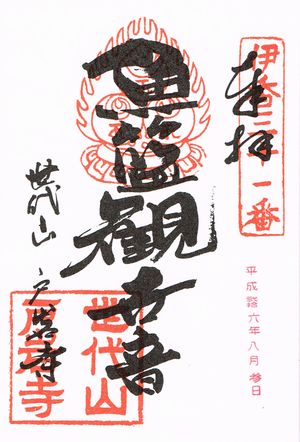 伊香三十一番
奉拝
平成 六年八月参日
魚籃観世音
世代山 戸岩寺
世代山
戸岩寺